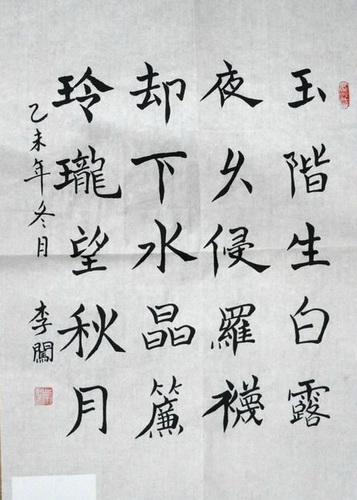 玉階生白露
夜久侵羅襪
却下水晶簾
玲瓏望秋月
乙未年冬月 李闖